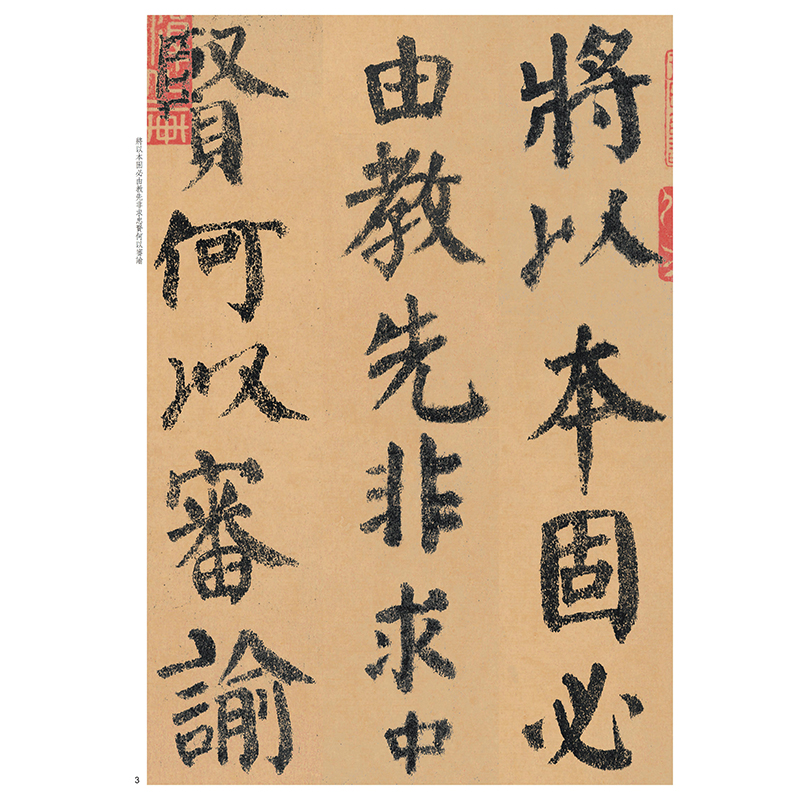 將以本固必
由教先非求中
賢何以審諭
將以本固必由教先非求忠賢何以審諭
3